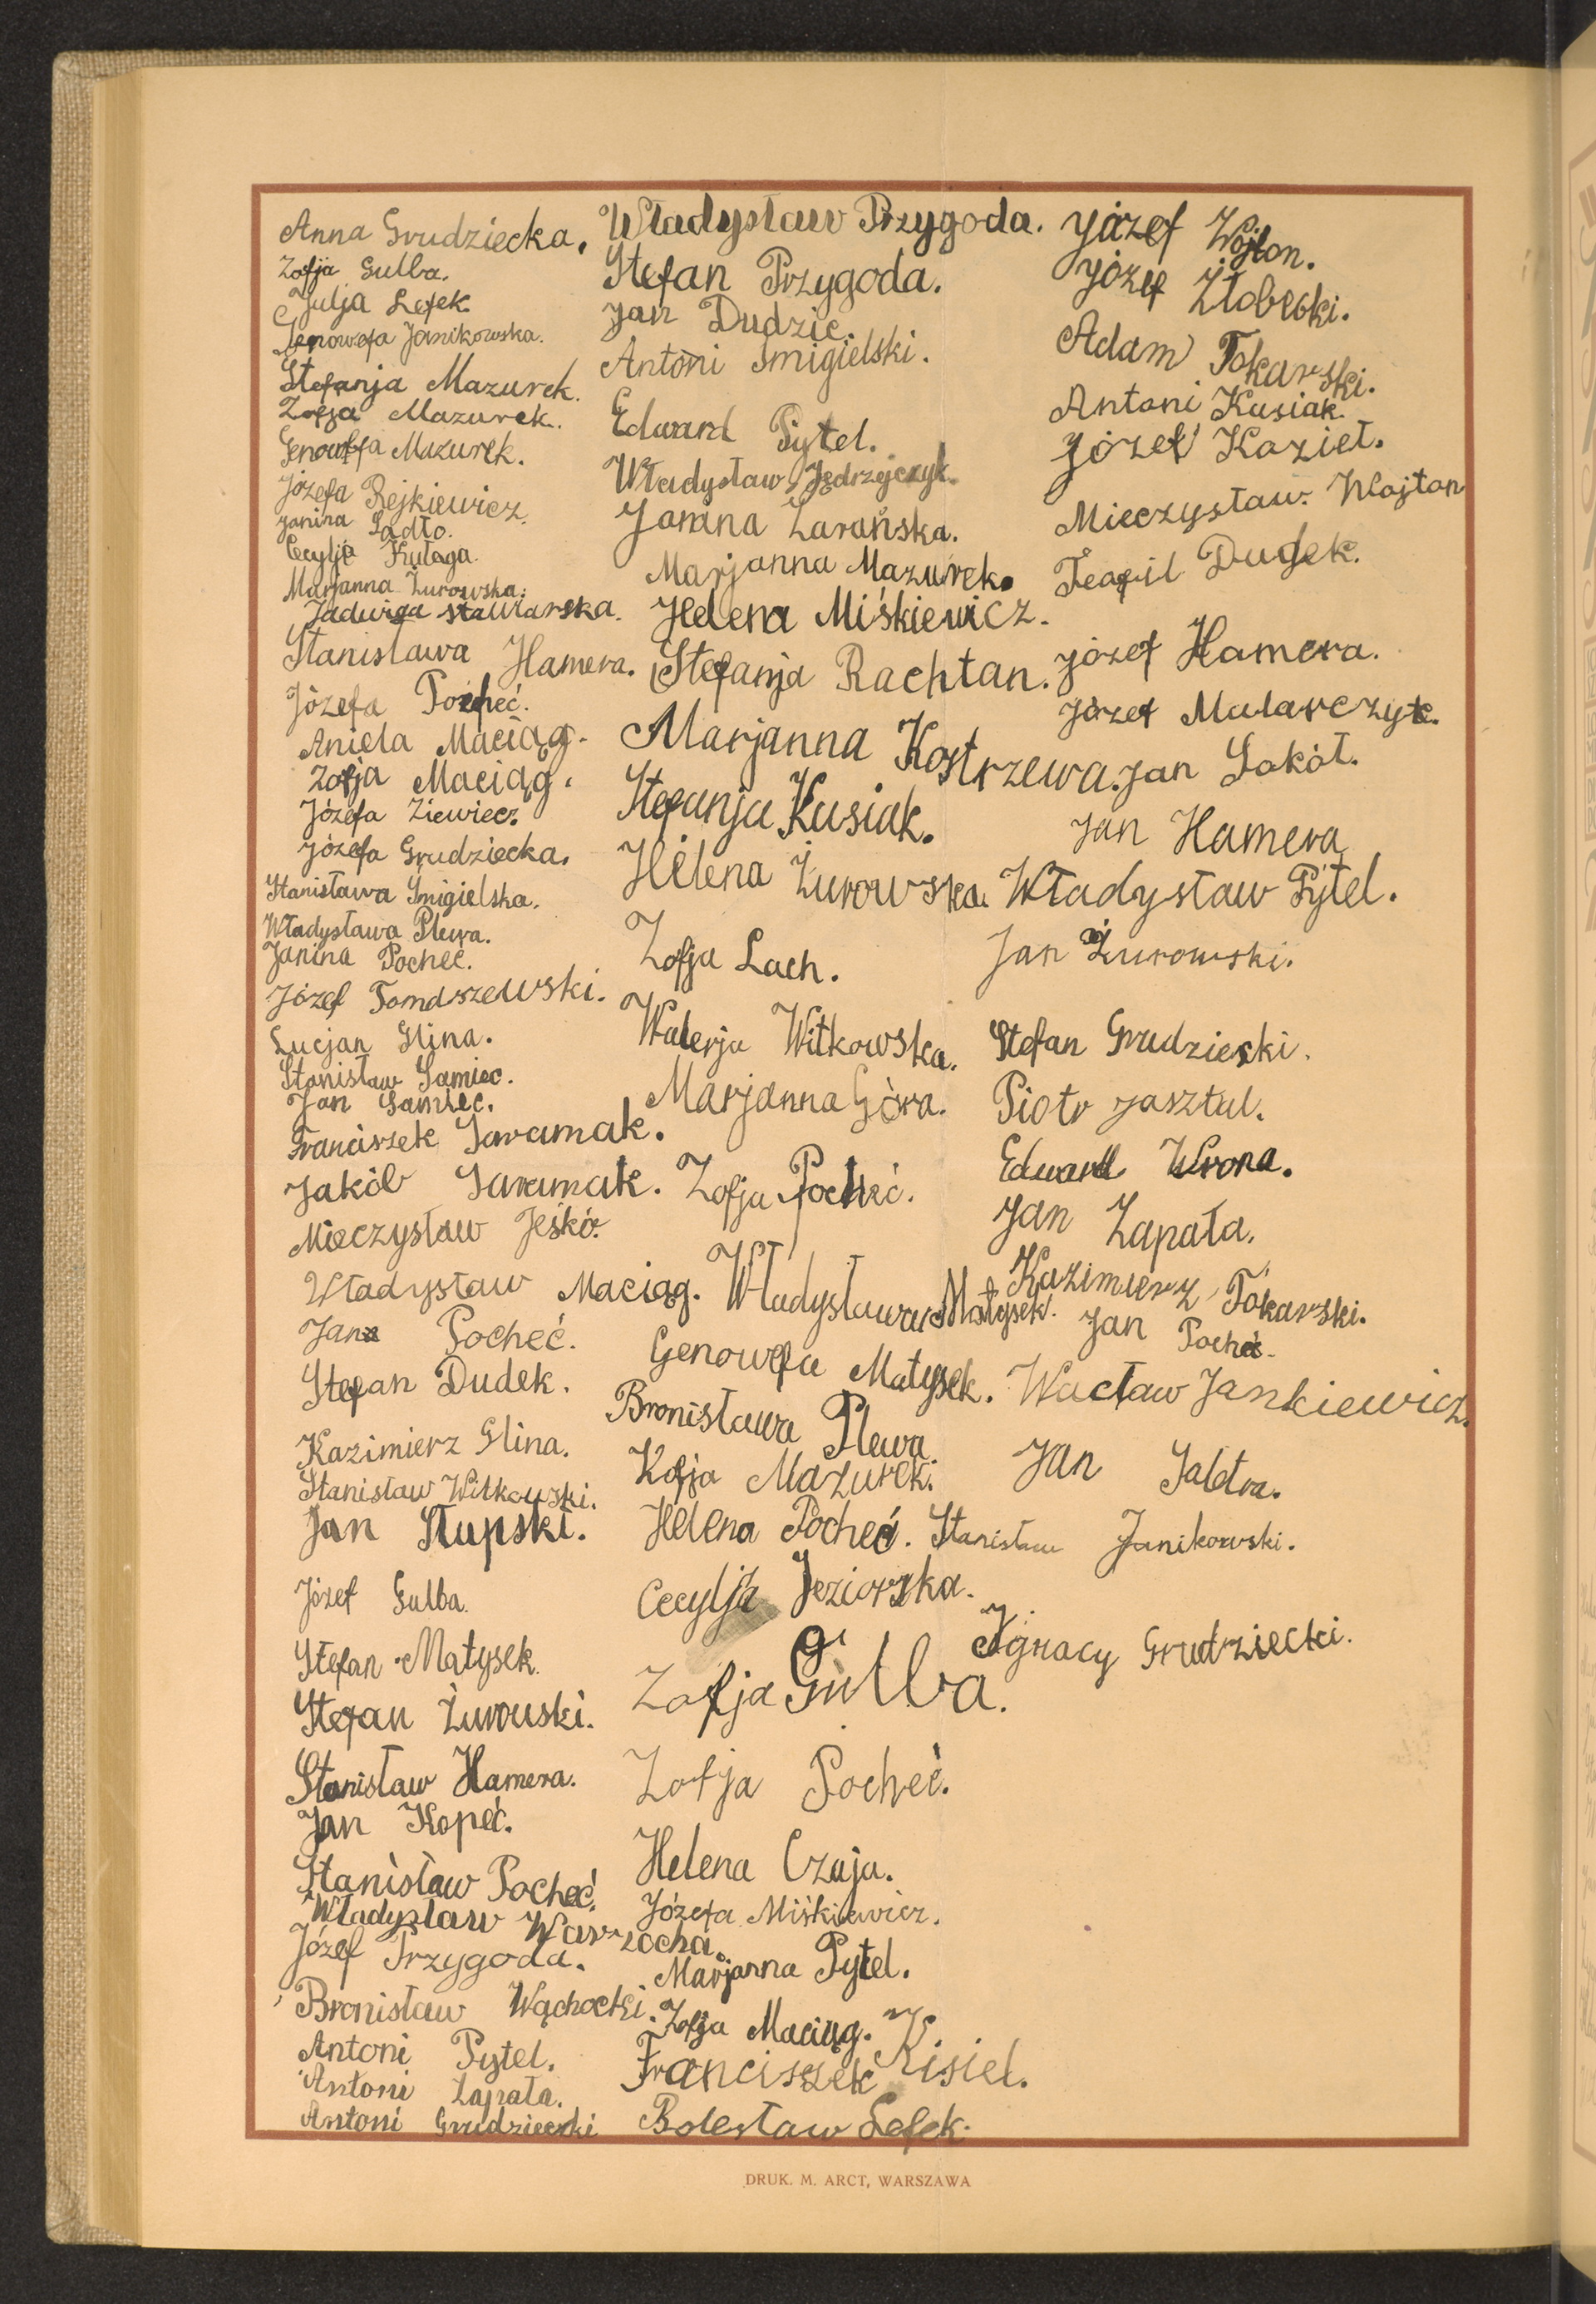 Anna Grudziecka.
Zofja Gulba.
Julja Lefek.
Genowefa Janikowska.
Stefanja Mazurek.
Zofja Mazurek.
Genowefa Mazurek.
Józefa Rejkiewicz.
Janina Sadło.
Cecylja Kułaga.
Marjanna Żurowska.
Jadwiga Stawiarska.
Stanisława Hamera.
Józefa Pocheć.
Aniela Maciąg.
Zofja Maciąg.
Józefa Ziewiec.
Józefa Grudziecka.
Stanisława Śmigielska.
Władysława Plewa.
Janina Pocheć.
Józef Tomaszewski.
Lucjan Glina.
Stanisław Samiec.
Jan Samiec.
Franciszek Saramak.
Jakób Saramak.
Mieczysław Jeśko.
Władysław Maciąg.
Jan Pocheć.
Stefan Dudek.
Kazimierz Glina.
Stanisław Witkowski.
Jan Słupski.
Józef Gulba.
Stefan Matysek.
Stefan Żurowski.
Stanisław Hamera.
Jan Kopeć.
Stanisław Pocheć.
Władysław Warzocha.
Józef Przygoda.
Bronisław Wąchocki.
Antoni Pytel.
Antoni Zapała.
Antoni Grudziecki
Władysław Przygoda.
Stefan Przygoda.
Jan Dudzic.
Antoni Śmigielski.
Edward Pytel.
Władysław Jędrzejczyk.
Janina Zarańska.
Marjanna Mazurek.
Helena Miśkiewicz.
Stefanja Rachtan.
Marjanna Kostrzewa.
Stefanja Kusiak.
Helena Żurowska.
Zofja Lach.
Walerja Witkowska.
Marjanna Góra.
Zofja Pocheć.
Władysława Matysek.
Genowefa Matysek.
Bronisława Plewa.
Zofja Mazurek.
Helena Pocheć.
Cecylja Jeziorska.
Zofja Gulba.
Zofja Pocheć.
Helena Czaja.
Józefa Miśkiewicz.
Marjanna Pytel.
Zofja Maciąg.
Franciszek Kisiel.
Bolesław Lefek.
Józef Wojton.
Józef Żłobecki.
Adam Tokarski.
Antoni Kusiak.
Józef Kozieł.
Mieczysław Wojton
Teofil Dudek.
Józef Hamera.
Józef Malarczyk.
Jan Sokół.
Jan Hamera
Władysław Pytel.
Jan Żurowski.
Stefan Grudziecki.
Piotr Jasztal.
Edward Wrona.
Jan Zapała.
Kazimierz Tokarski.
Jan Pocheć.
Wacław Jankiewicz.
Jan
Stanisław Janikowski.
Ignacy Grudziecki.
DRUK. M. ARCT, WARSZAWA